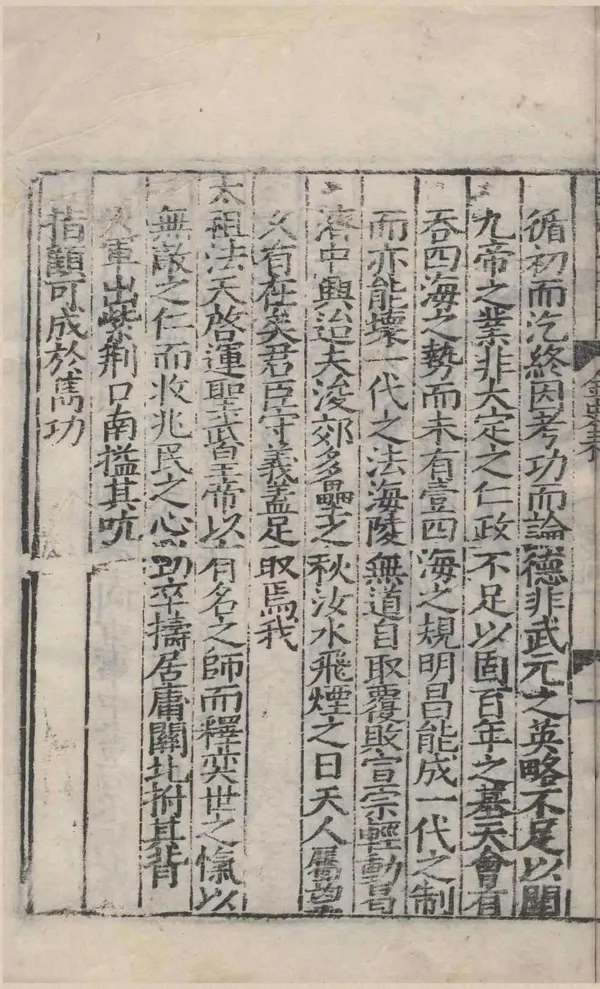 循初而汔終因考功而論德非武元之英略不足以開
九帝之業非大定之仁政不足以固百年之基天會有
吞四海之勢而未有壹四海之規明昌能成一代之制
而亦能壞一代之法海陵無道自取覆敗宣宗輕動曷
濟中興迨夫浚郊多壘之秋汝水飛煙之日天人屬望
久有在矣君臣守義蓋足取焉我
太祖法天啓運聖武皇帝以有名之師而釋奕世之愾以
無敵之仁而收兆民之心勁卒擣居庸關北拊其背
大軍出紫荆口南搤其吭
指顧可成於雋功
金史表
一